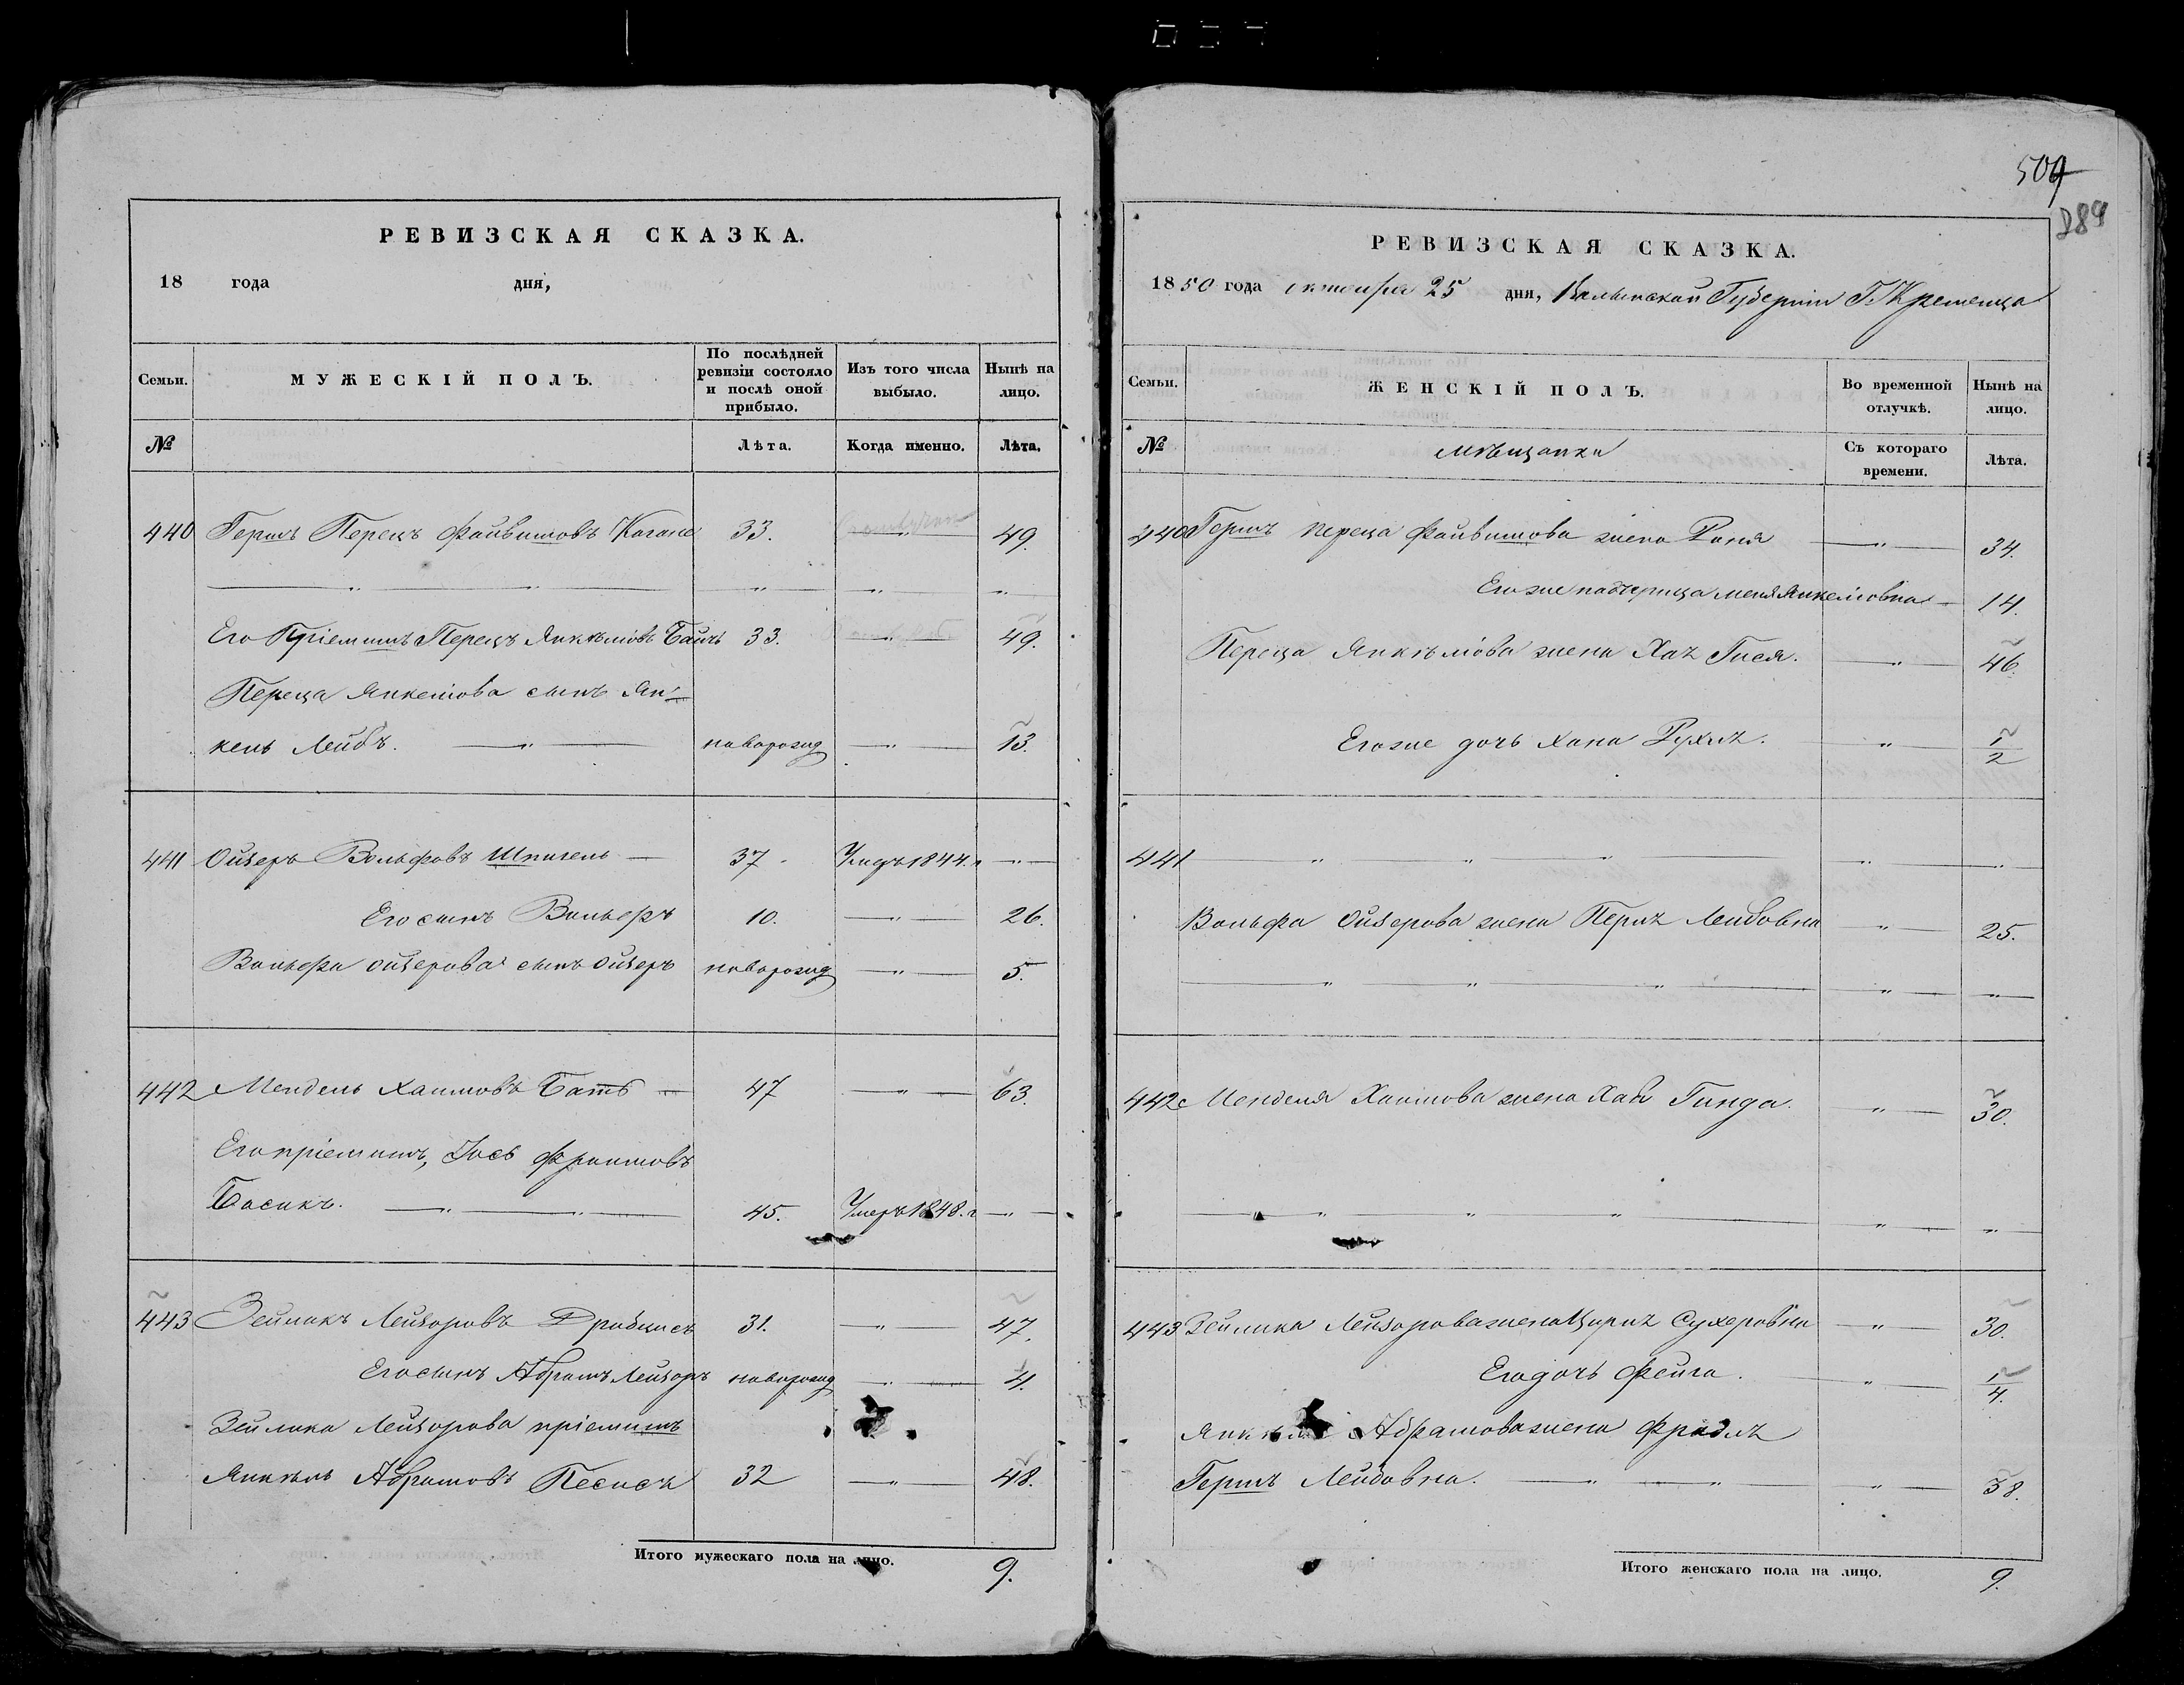 РЕВИЗСКАЯ СКАЗКА.
18 года дня,
Семьи.
МУЖЕСКІЙ ПОЛЪ.
По послѣдней ревизіи состояло и послѣ оной прибыло.
Изъ того числа выбыло.
Нынѣ на лицо.
№
Лѣта.
Когда именно.
Лѣта.
440 Гершъ Перецъ Файвишовъ Кагане 33. 49.
Его Пріемышъ Перецъ Янкелювъ Байчъ 33. 49.
Переца Янкелюва сынъ Ян-
кель Лейбъ. новорожд 13.
441 Ойзеръ Вольфовъ Шпигель 37 Умеръ 1844.г
Его сынъ Вольфъ 10. 26.
Вольфа Ойзерова сынъ Ойзеръ новорожд 5.
442 Мендель Хаимовъ Батъ 47 63.
Его пріемышъ, Іось Фроимовъ
Басикъ. 45. Умеръ 1848.г
443 Зейликъ Лейзоровъ Дробнисъ 31. 47.
Его сынъ Абрамъ Лейзоръ новорожд 4.
Зейлика Лейзорова пріемышъ
Янкель Абрамовъ Песисъ 32 48.
Итого мужескаго пола на лицо. 9.
509
289
РЕВИЗСКАЯ СКАЗКА.
1850 года октября 25 дня, Волынской Губерніи Г. Кременца
Семьи.
ЖЕНСКІЙ ПОЛЪ.
Во временной отлучкѣ.
Нынѣ на лицо.
№
Мѣщанки
Съ котораго времени.
Лѣта.
440 Гершъ Переца Файвишова жена Раня 34.
Его же падчерица Меня Янкелювна 14.
Переца Янкелюва жена Хая Гися. 46.
Его же дочь Хана Рухля. 1/2
441
Вольфа Ойзерова жена Перля Лейбовна 25.
442 Менделя Хаимова жена Хая Гинда. 30.
443 Зейлика Лейзорова жена Цирля Сухеровна 30.
Его дочь Фейга. 1/4.
Абрамова жена Фрадля
Гершъ Лейбовна. 38.
Итого женскаго пола на лицо. 9.